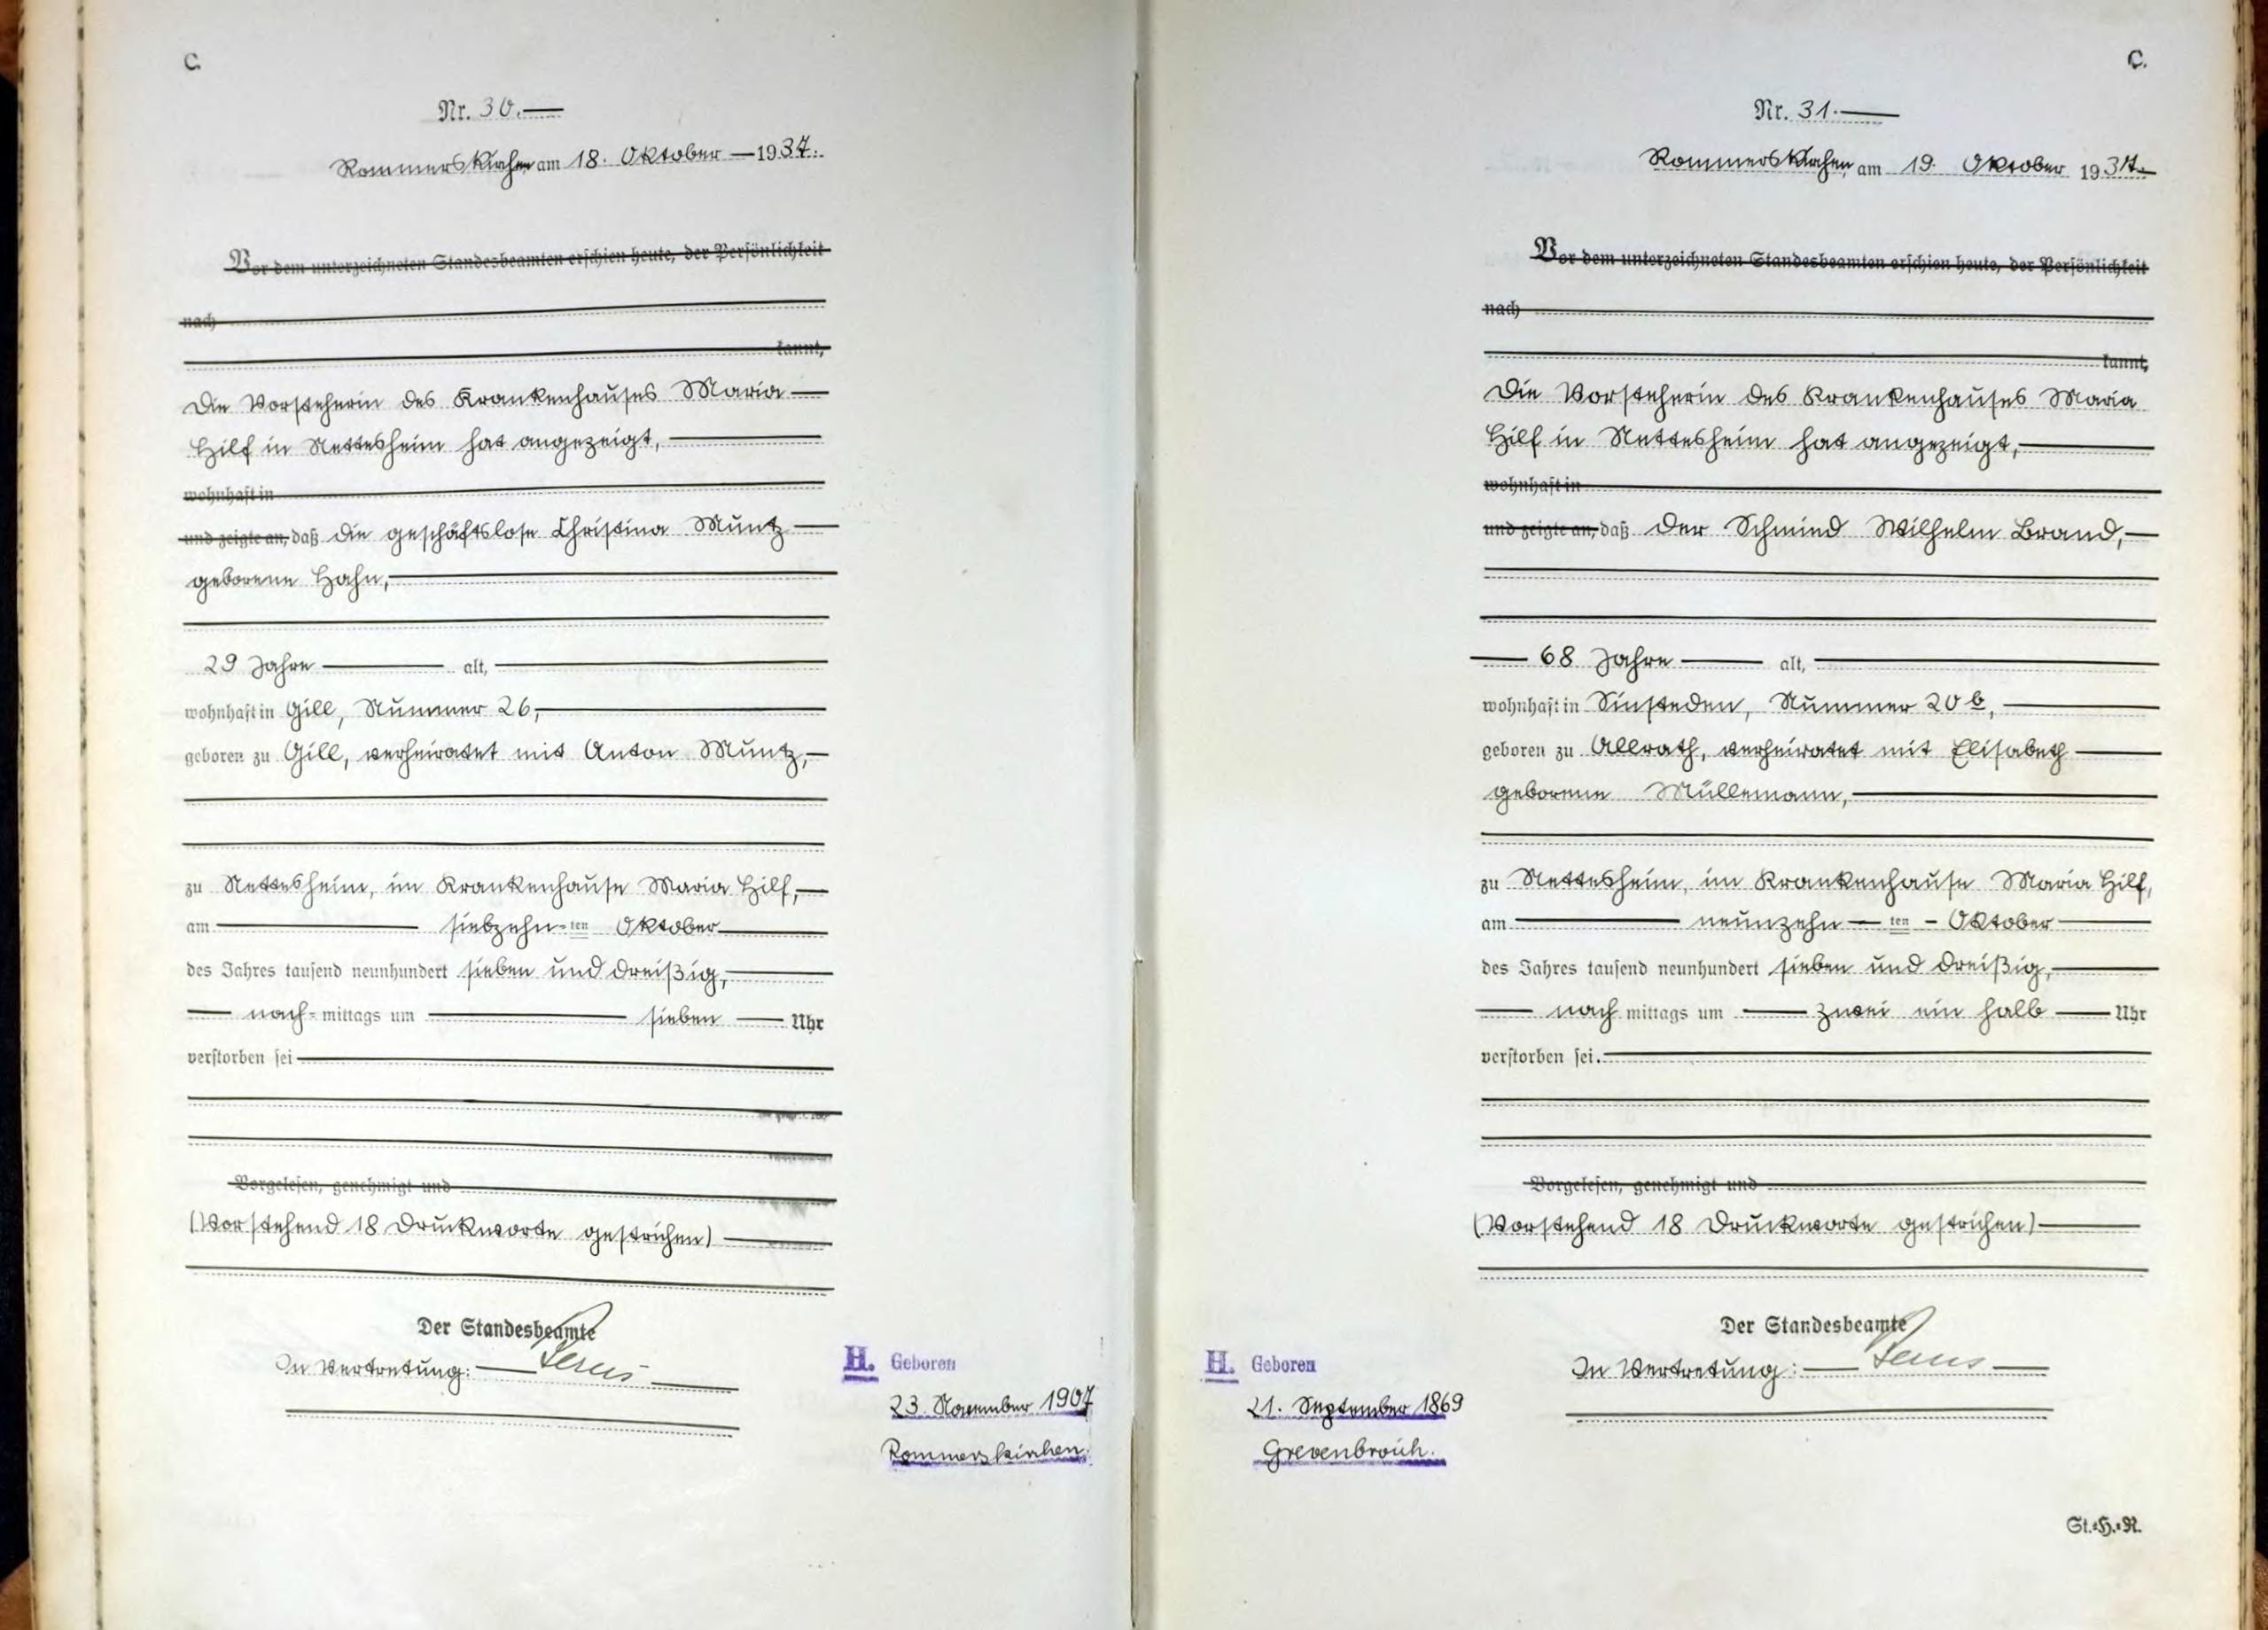 C.
Nr. 30.
Rommerskirchen am 18. Oktober 1937.
Vor dem unterzeichneten Standesbeamten erschien heute, der Persönlichkeit
nach
kannt,
Die Vorsteherin des Krankenhauses Maria
Hilf in Nettesheim hat angezeigt,
wohnhaft in
und zeigte an, daß die geschäftslose Christina Muntz
geborene Hahn,
29 Jahre alt,
wohnhaft in Gill, Nummer 26,
geboren zu Gill, verheiratet mit Anton Muntz,
zu Nettesheim, im Krankenhause Maria Hilf,
am siebzehn-ten Oktober
des Jahres tausend neunhundert sieben und dreißig,
nach-mittags um sieben Uhr
verstorben sei
Vorgelesen, genehmigt und
(Vorstehend 18 Druckworte gestrichen)
Der Standesbeamte
In Vertretung:
H. Geboren
23. November 1907
Rommerskirchen.
C.
Nr. 31.
Rommerskirchen, am 19. Oktober 1937.
Vor dem unterzeichneten Standesbeamten erschien heute, der Persönlichkeit
nach
kannt,
Die Vorsteherin des Krankenhauses Maria
Hilf in Nettesheim hat angezeigt,
wohnhaft in
und zeigte an, daß der Schmied Wilhelm Brand,
68 Jahre alt,
wohnhaft in Sinsteden, Nummer 20 b,
geboren zu Allrath, verheiratet mit Elisabeth
geborene Müllemann,
zu Nettesheim, im Krankenhause Maria Hilf,
am neunzehn ten - Oktober
des Jahres tausend neunhundert sieben und dreißig,
nach mittags um zwei ein halb Uhr
verstorben sei.
Vorgelesen, genehmigt und
(Vorstehend 18 Druckworte gestrichen)
Der Standesbeamte
In Vertretung:
H. Geboren
21. September 1869
Grevenbroich.
St.=H.=R.